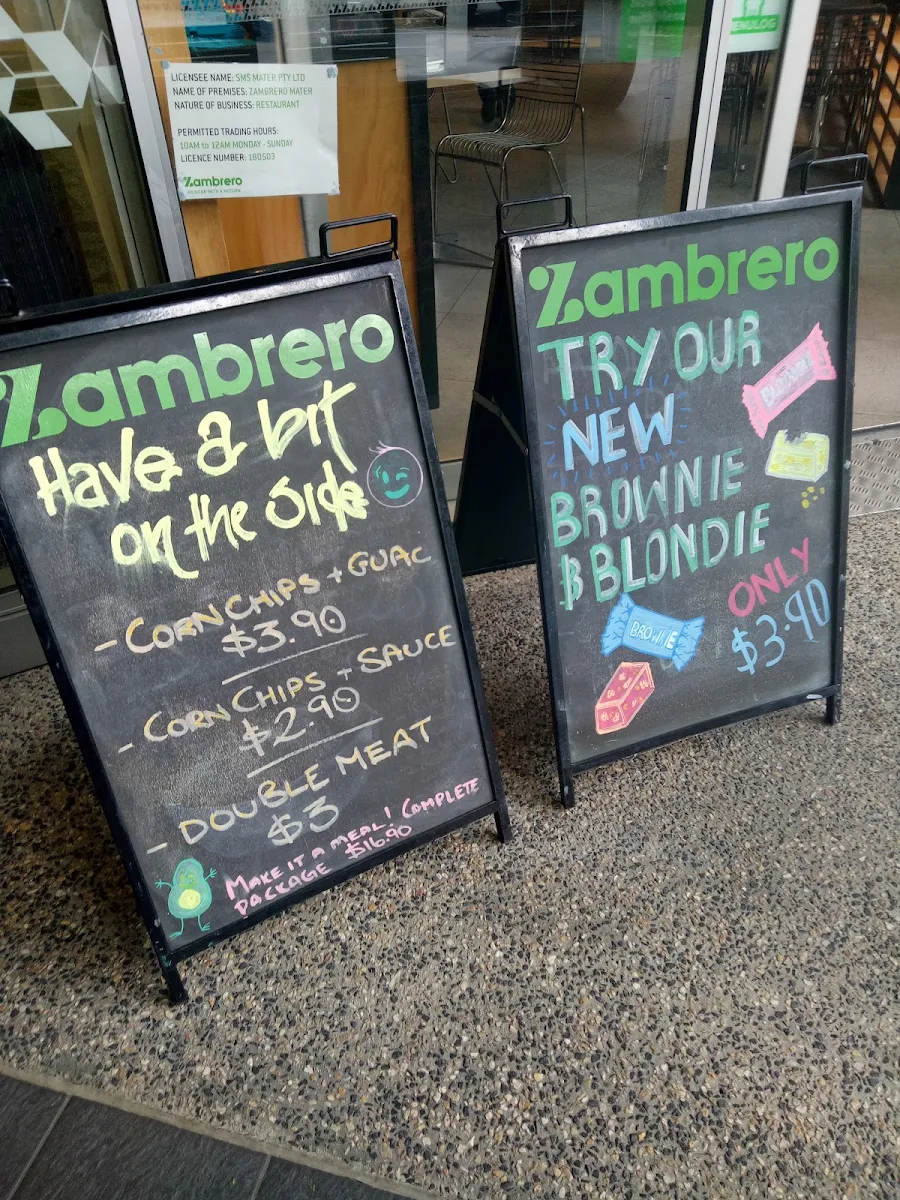 LICENSEE NAME: SMS MATER PTY LTD
NAME OF PREMISES: ZAMBRERO MATER
NATURE OF BUSINESS: RESTAURANT
PERMITTED TRADING HOURS:
10AM to 12AM MONDAY - SUNDAY
LICENCE NUMBER: 180503
Zambrero
MEXICAN WITH A MISSION
Zambrero
Have a bit
on the side
- CORN CHIPS + GUAC
$3.90
- CORN CHIPS + SAUCE
$2.90
- DOUBLE MEAT
$3
MAKE IT A MEAL! COMPLETE
PACKAGE $16.90
Zambrero
TRY OUR
NEW
BROWNIE
& BLONDIE
ONLY
$3.90
BLONDIE
BROWNIE
MENULOG